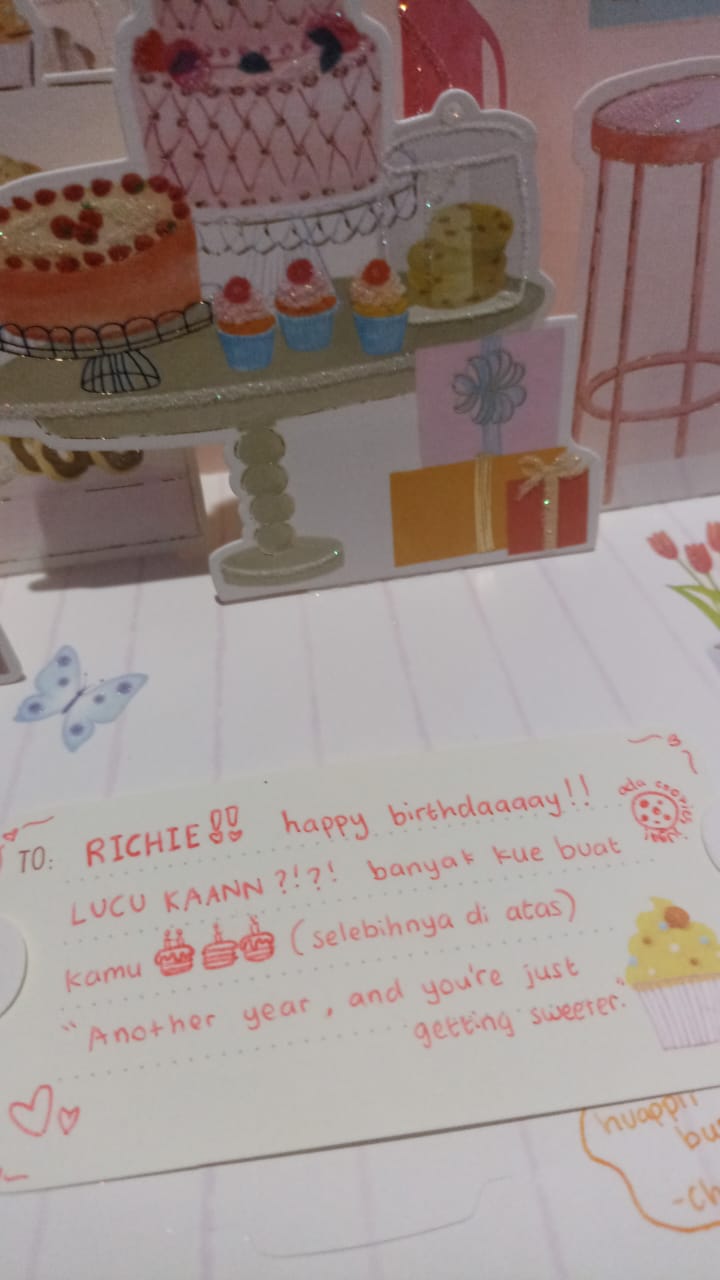 TO: RICHIE!! happy birthdaaaay!!
ada cookies
LUCU KAANN?!?! banyak kue buat
kamu (selebihnya di atas)
"Another year, and you're just
getting sweeter."
huappii
-Ch